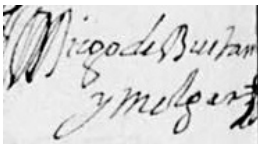 Diego de Bustam
y Melgar